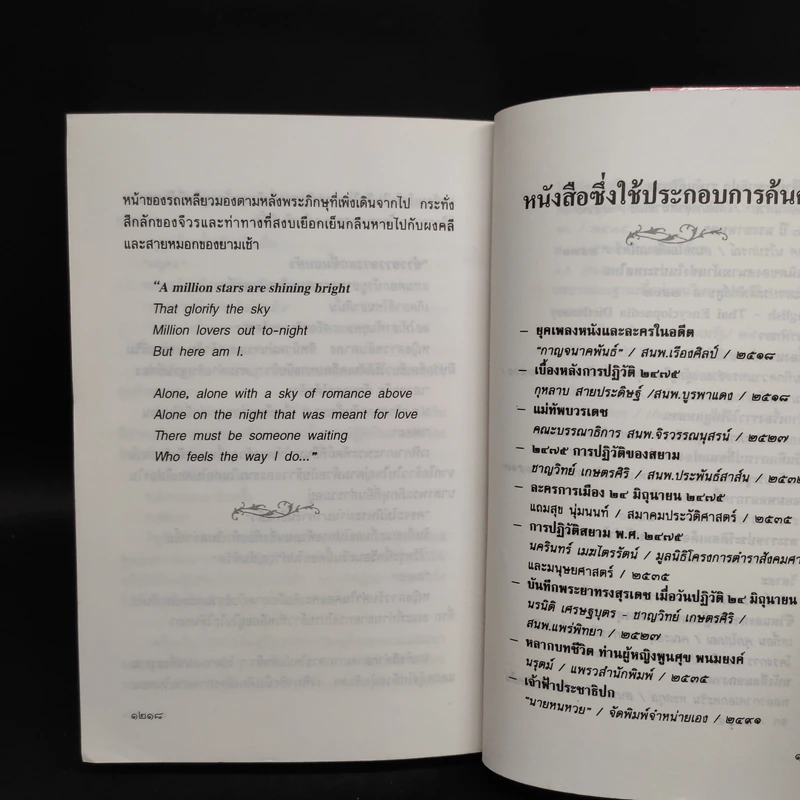 หน้าของรถเหลียวมองตามหลังพระภิกษุที่เพิ่งเดินจากไป กระทั่ง
สีกลักของจีวรและท่าทางที่สงบเยือกเย็นกลืนหายไปกับผงคลี
และสายหมอกของยามเช้า
“A million stars are shining bright
That glorify the sky
Million lovers out to-night
But here am I.
Alone, alone with a sky of romance above
Alone on the night that was meant for love
There must be someone waiting
Who feels the way I do...”
๑๒๑๘
หนังสือซึ่งใช้ประกอบการค้น
– ยุคเพลงหนังและละครในอดีต
"กาญจนาคพันธ์" / สนพ.เรืองศิลป์ / ๒๕๑๘
– เบื้องหลังการปฏิวัติ ๒๔๗๕
กุหลาบ สายประดิษฐ์ /สนพ.บูรพาแดง / ๒๕๑๘
– แม่ทัพบวรเดช
คณะบรรณาธิการ สนพ.จิรวรรณนุสรณ์ / ๒๕๒๗
– ๒๔๗๕ การปฏิวัติของสยาม
ชาญวิทย์ เกษตรศิริ / สนพ.ประพันธ์สาส์น /
– ละครการเมือง ๒๔ มิถุนายน ๒๔๗๕
แถมสุข นุ่มนนท์ / สมาคมประวัติศาสตร์ / ๒๕๓๕
– การปฏิวัติสยาม พ.ศ. ๒๔๗๕
นครินทร์ เมฆไตรรัตน์ / มูลนิธิโครงการตำราสังคมศา
และมนุษยศาสตร์ / ๒๕๓๕
– บันทึกพระยาทรงสุรเดช เมื่อวันปฏิวัติ ๒๔ มิถุนายน
นรนิติ เศรษฐบุตร – ชาญวิทย์ เกษตรศิริ /
สนพ.แพร่พิทยา / ๒๕๒๗
– หลากบทชีวิต ท่านผู้หญิงพูนศุข พนมยงค์
นรุตม์ / แพรวสำนักพิมพ์ / ๒๕๓๕
– เจ้าฟ้าประชาธิปก
"นายหนหวย" / จัดพิมพ์จำหน่ายเอง / ๒๔๙๑